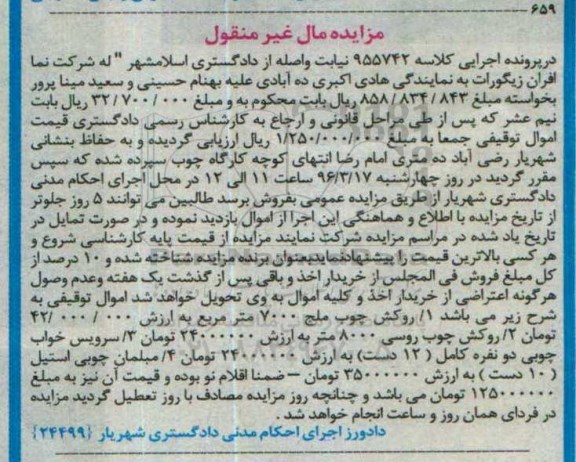 ۶۵۹
مزایده مال غیر منقول
درپرونده اجرایی کلاسه ۹۵۵۷۴۲ نیابت واصله از دادگستری اسلامشهر "له شرکت نما
افران زیگورات به نمایندگی هادی اکبری ده آبادی علیه بهنام حسینی و سعید مینا پرور
بخواسته مبلغ ۸۵۸/۸۳۴/۸۴۳ ریال بابت محکوم به و مبلغ ۳۲/۷۰۰/۰۰۰ ریال بابت
نیم عشر که پس از طی مراحل قانونی و ارجاع به کارشناس رسمی دادگستری قیمت
اموال توقیفی جمعا به مبلغ ۱/۲۵۰/۰۰۰/۰۰۰ ریال ارزیابی گردیده و به حفاظ بنشانی
شهریار رضی آباد ده متری امام رضا انتهای کوچه کارگاه چوب سپرده شده که سپس
مقرر گردید در روز چهارشنبه ۹۶/۳/۱۷ ساعت ۱۱ الی ۱۲ در محل اجرای احکام مدنی
دادگستری شهریار از طریق مزایده عمومی بفروش برسد طالبین می توانند ۵ روز جلوتر
از تاریخ مزایده با اطلاع و هماهنگی این اجرا از اموال بازدید نموده و در صورت تمایل در
تاریخ یاد شده در مراسم مزایده شرکت نمایند مزایده از قیمت پایه کارشناسی شروع و
هر کسی بالاترین قیمت را پیشنهاد نماید بعنوان برنده مزایده شناخته شده و ۱۰ درصد از
کل مبلغ فروش فی المجلس از خریدار اخذ و باقی پس از گذشت یک هفته وعدم وصول
هرگونه اعتراضی از خریدار اخذ و کلیه اموال به وی تحویل خواهد شد اموال توقیفی به
شرح زیر می باشد ۱/ روکش چوب ملچ ۷۰۰۰ متر مربع به ارزش ۴۲/۰۰۰/۰۰۰
تومان ۲/ روکش چوب روسی ۸۰۰۰ متر به ارزش ۲۴۰۰۰۰۰۰ تومان ۳/ سرویس خواب
چوبی دو نفره کامل ( ۱۲ دست) به ارزش ۲۴۰۰۰۰۰۰ تومان ۴/ مبلمان چوبی استیل
( ۱۰ دست ) به ارزش ۳۵۰۰۰۰۰۰ تومان – ضمنا اقلام نو بوده و قیمت آن نیز به مبلغ
۱۲۵۰۰۰۰۰۰ تومان می باشد و چنانچه روز مزایده مصادف با روز تعطیل گردید مزایده
در فردای همان روز و ساعت انجام خواهد شد .
دادورز اجرای احکام مدنی دادگستری شهریار {۲۴۴۹۹}